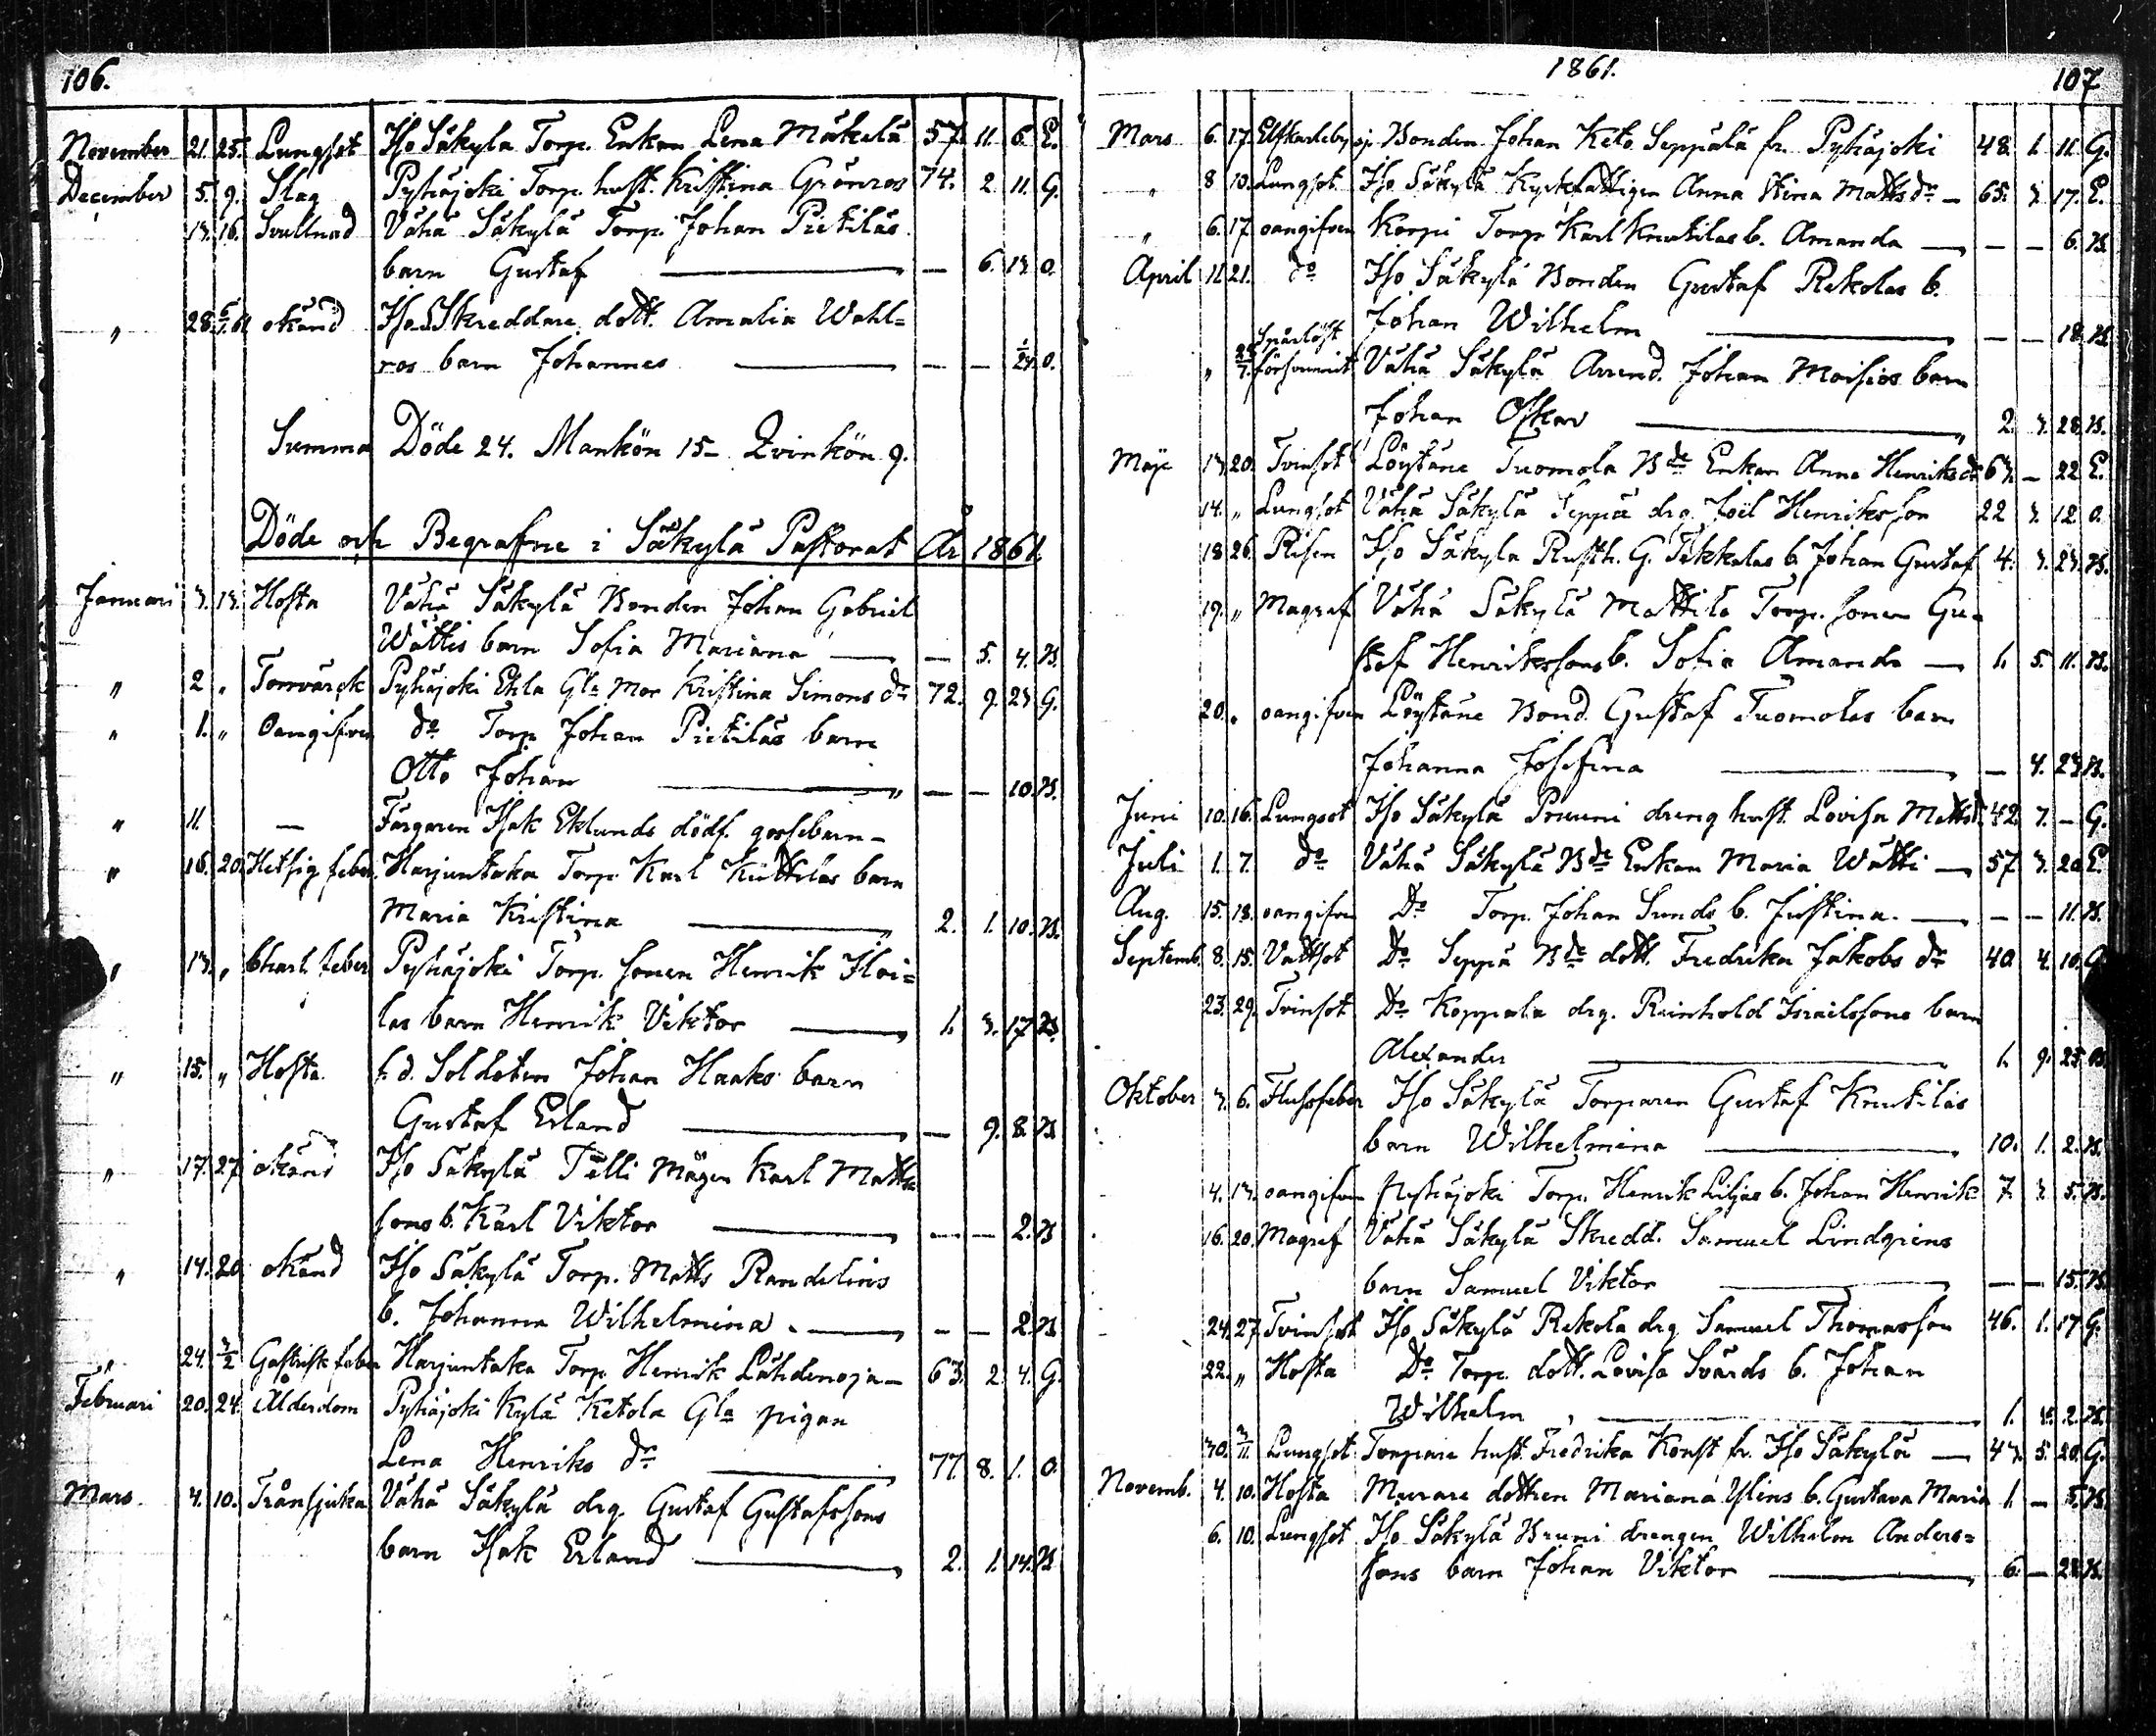 106.
November 21. 25. Lungsot Iso Säkylä Torp. Enkan Lena Mäkelä 57. 11. 6. E.
December 5. 9. Slag Pyhäjoki Torp. hust. Kristina Grönros 74. 2. 11. G.
13. 16. Svullnad Vähä Säkylä Torp. Johan Pietiläs
barn Gustaf — — 6. 13. O.
" 28. 6/1. 61 okänd Iso S. Skreddare dott. Amalia Wahl=
ros barn Johannes — — — 1/24. O.
Summa Döde 24. Mankön 15 – Qvinkön 9.
Döde och Begrafne i Säkylä Pastorat År 1861.
Januari 3. 13. Hosta Vähä Säkylä Bonden Johan Gabriel
Wättis barn Sofia Mariana — — 5. 4. B.
" 2 " Torrvärck Pyhäjoki Ekla Gla Mor Kristina Simons dr 72. 9. 23 G.
" 1. " Oangifven do Torp. Johan Pietiläs barn
Otto Johan — — — 10. B.
" 11. — Färgaren Isak Eklunds dödf. gossebarn –
" 16. 20. Hetsig feber. Harjuntaka Torp. Karl Küttilas barn
Maria Kristina — 2. 1. 10. B.
" 13. " Charl. feber Pyhäjoki Torp. sonen Henrik Iloi=
las barn Henrik Viktor — 1. 3. 17 B.
" 15. " Hosta f.d. Soldaten Johan Haaks barn
Gustaf Erland — — 9. 8. B
" 17. 27 okänd Iso Säkylä Pelli Mågen Karl Matts
sons b. Karl Viktor — — — 2. B
" 14. 20 okänd Iso Säkylä Torp. Matts Randelins
b. Johanna Wilhelmina. — — — 2. B
" 24. 3/2 Gastrisk feber Harjuntaka Torp. Henrik Lähdenoja – 63. 2. 4. G.
Februari 20. 24. Ålderdom Pyhäjoki Kylä Ketola Gla pigan
Lena Henriks dr — 77. 8. 1. O.
Mars. 4. 10. Trånsjuka Vähä Säkylä drg. Gustaf Gustafssons
barn Isak Erland — 2. 1. 14. B
1861. 107
Mars 6. 17. Elfkarleby Bonden Johan Keto Seppälä fr. Pyhäjoki 48. 1. 11. G.
" 8 10. Lungsot Iso Säkylä Kyrkfattigen Anna Stina Mattsdr – 65. 3. 17. E.
" 6. 17 oangifven Korpi Torp. Karl Knutilas b. Amanda — — — 6. B.
April 11. 21. do Iso Säkylä Bonden Gustaf Rekolas b.
Johan Wilhelm — — — 18. B.
Spårlöst
" försvunnit Vähä Säkylä Arrend. Johan Moisios barn
Johan Oskar — 2. 3. 28. B.
Maji 13. 20. Tvinsot Löytäne Tuomola Bde Enkan Anna Henriksdr 63. – 22 E.
14. " Lungsot Vähä Säkylä Seppä drg. Joël Henriksson 22 3. 12 O.
18 26. Risen Iso Säkylä Rusth. G. Pekkalas b. Johan Gustaf 4. 3. 23. B.
19. " Magref Vähä Säkylä Mattila Torp. sonen Gu-
staf Henrikssons b. Sofia Amanda — 1. 5. 11. B.
20. " oangifven Löytäne Bond. Gustaf Tuomolas barn
Johanna Josefina — — 4. 23. B.
Juni 10. 16. Lungsot Iso Säkylä Pruuni dreng hust. Lovisa Mattsdr 42. 7. – G.
Juli 1. 7. do Vähä Säkylä Bde Enkan Maria Wätti — 57 3. 20. E.
Aug. 15. 18. oangifven Do Torp. Johan Sunds b. Justina. — — — 11. B.
Septemb. 8. 15. Vattsot Do Seppä Bde dott. Fredrika Jakobs dr 40 4. 10. G.
23. 29. Tvinsot Do Koppala drg. Reinhold Israelssons barn
Alexander — 1. 9. 25. B.
Oktober 3. 6. Flussfeber Iso Säkylä Torparen Gustaf Knutiläs
barn Wilhelmina — 10. 1. 2. B.
4. 13. oangifven Pyhäjoki Torp. Henrik Liljas b. Johan Henrik 7. 3. 5. B.
16. 20. Magref Vähä Säkylä Skredd. Samuel Lindgrens
barn Samuel Viktor — — — 15. B.
24. 27 Tvinsot Iso Säkylä Rekola drg Samuel Thomasson 46. 1. 17 G.
22. " Hosta Do Torp. dott. Lovisa Svärds b. Johan
Wilhelm — 1. 2. B.
30. 3/11 Lungsot Torpare hust. Fredrika Konst fr. Iso Säkylä — 43. 5. 20. G.
Novemb. 4. 10. Hosta Murare dottren Mariana Ylens b. Gustava Maria 1. – 5. B.
6. 10. Lungsot Iso Säkylä Bruni drengen Wilhelm Anders=
sons barn Johan Viktor — 6. – 28. B.